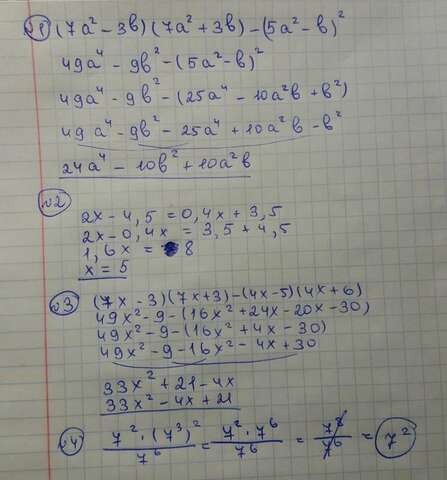 №1 (7a² - 3b)(7a² + 3b) - (5a² - b)²
49a⁴ - 9b² - (5a² - b)²
49a⁴ - 9b² - (25a⁴ - 10a²b + b²)
49a⁴ - 9b² - 25a⁴ + 10a²b - b²
24a⁴ - 10b² + 10a²b
№2
2x - 4,5 = 0,4x + 3,5
2x - 0,4x = 3,5 + 4,5
1,6x = 8
x = 5
№3 (7x - 3)(7x + 3) - (4x - 5)(4x + 6)
49x² - 9 - (16x² + 24x - 20x - 30)
49x² - 9 - (16x² + 4x - 30)
49x² - 9 - 16x² - 4x + 30
33x² + 21 - 4x
33x² - 4x + 21
№4 7² · (7³)² / 7⁶ = 7² · 7⁶ / 7⁶ = 7⁸ / 7⁶ = 7²